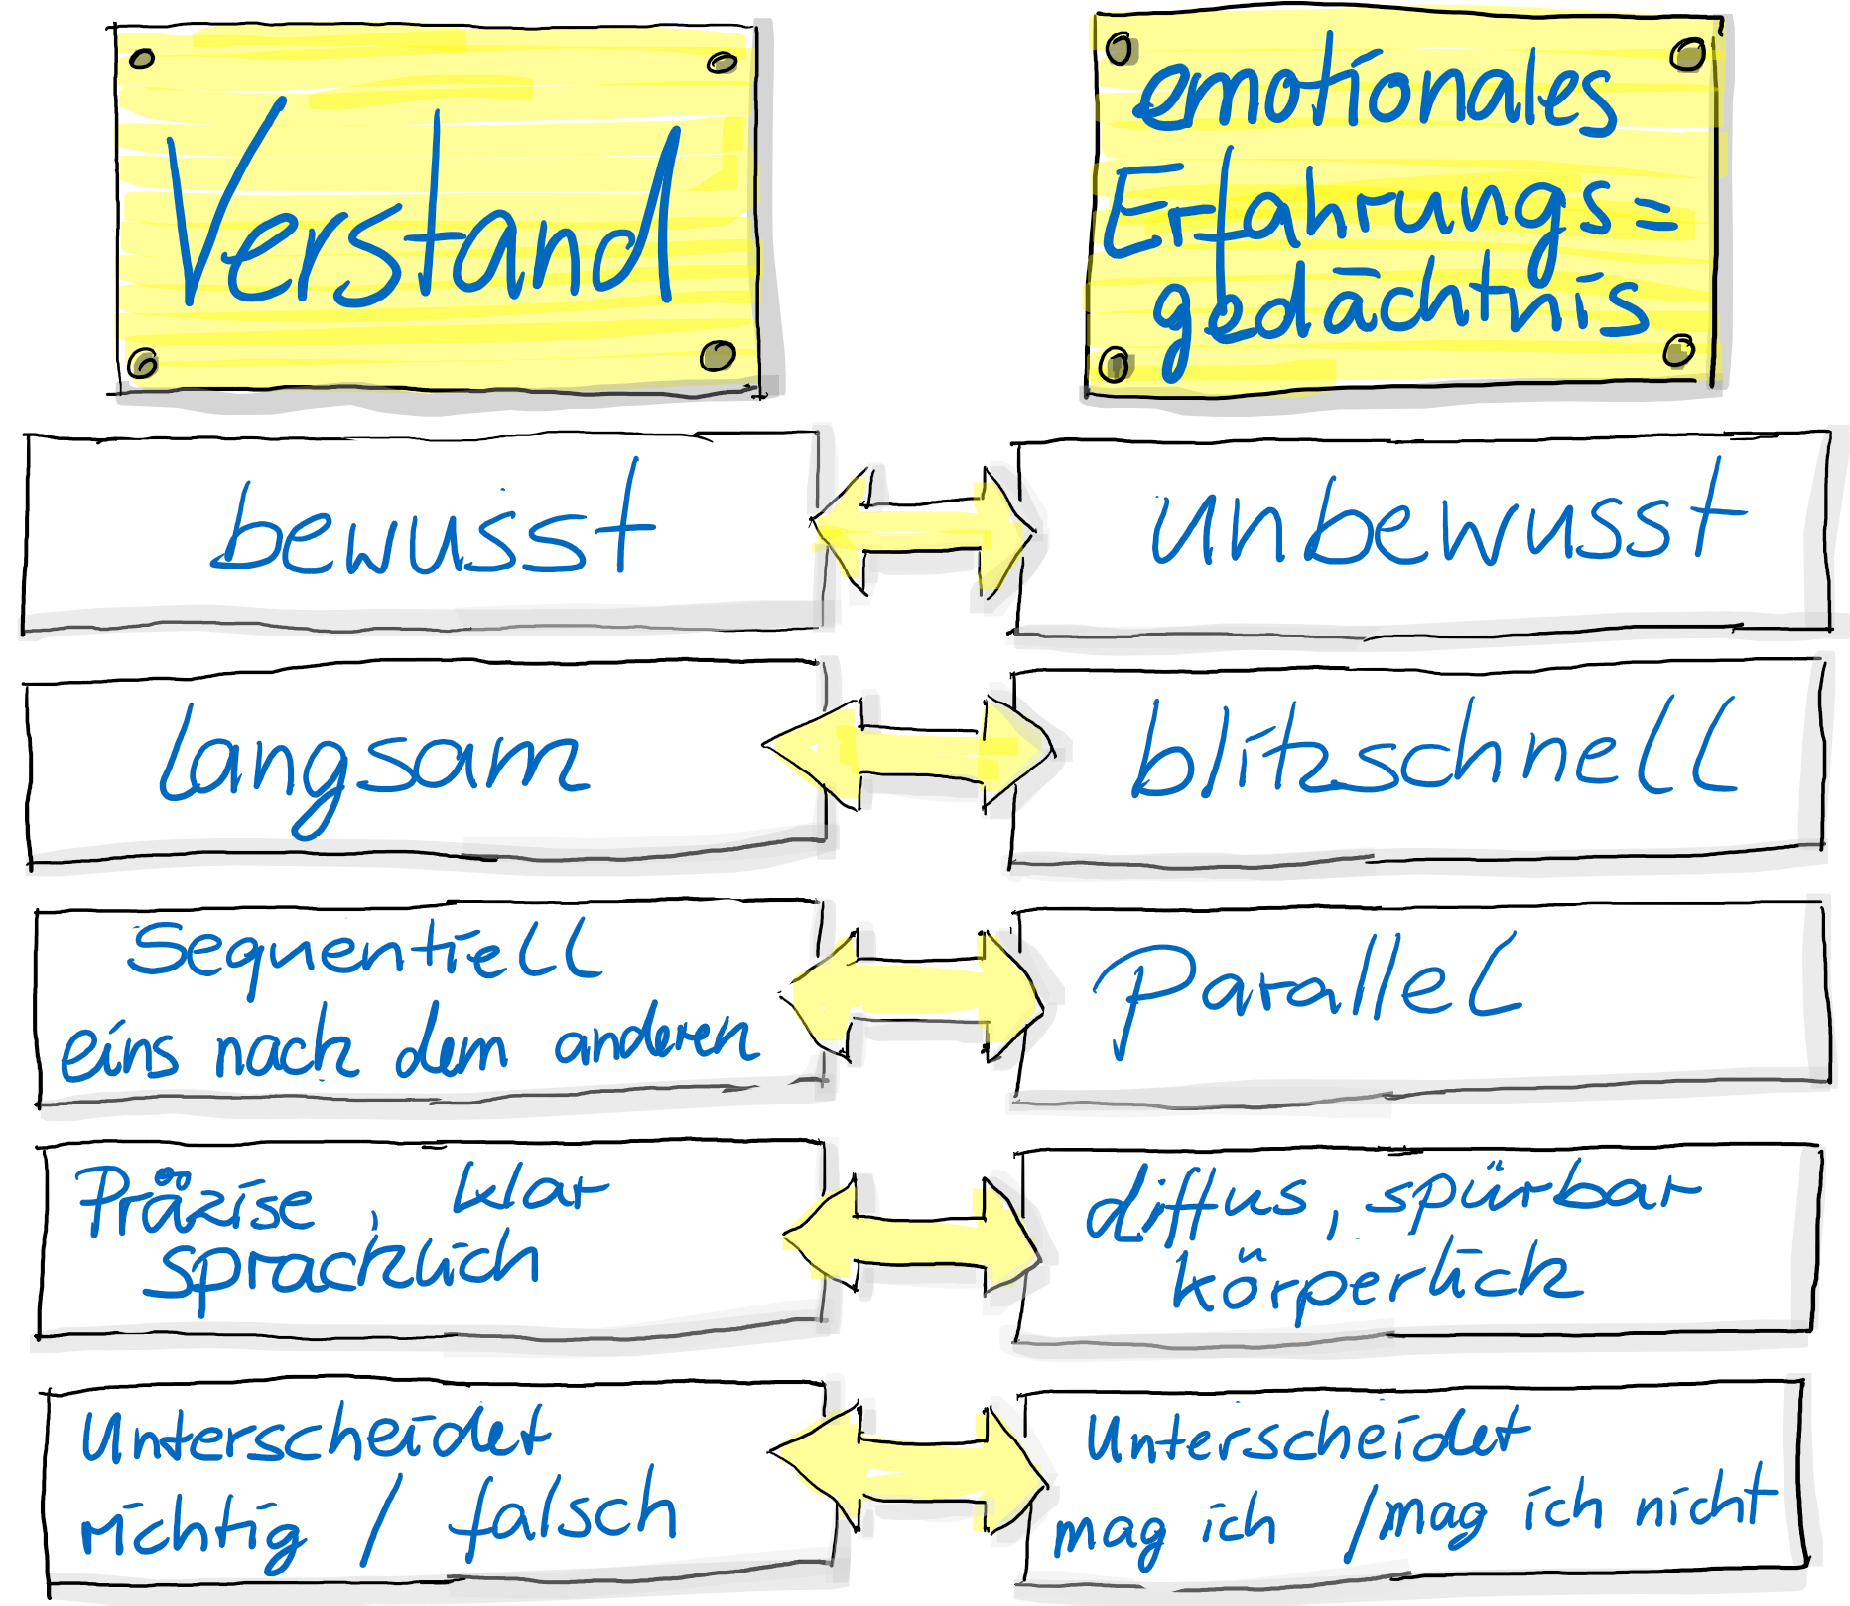 Verstand
emotionales
Erfahrungs=
gedächtnis
bewusst
unbewusst
langsam
blitzschnell
Sequentiell
eins nach dem anderen
Parallel
Präzise, klar
sprachlich
diffus, spürbar
körperlich
Unterscheidet
richtig / falsch
Unterscheidet
mag ich / mag ich nicht